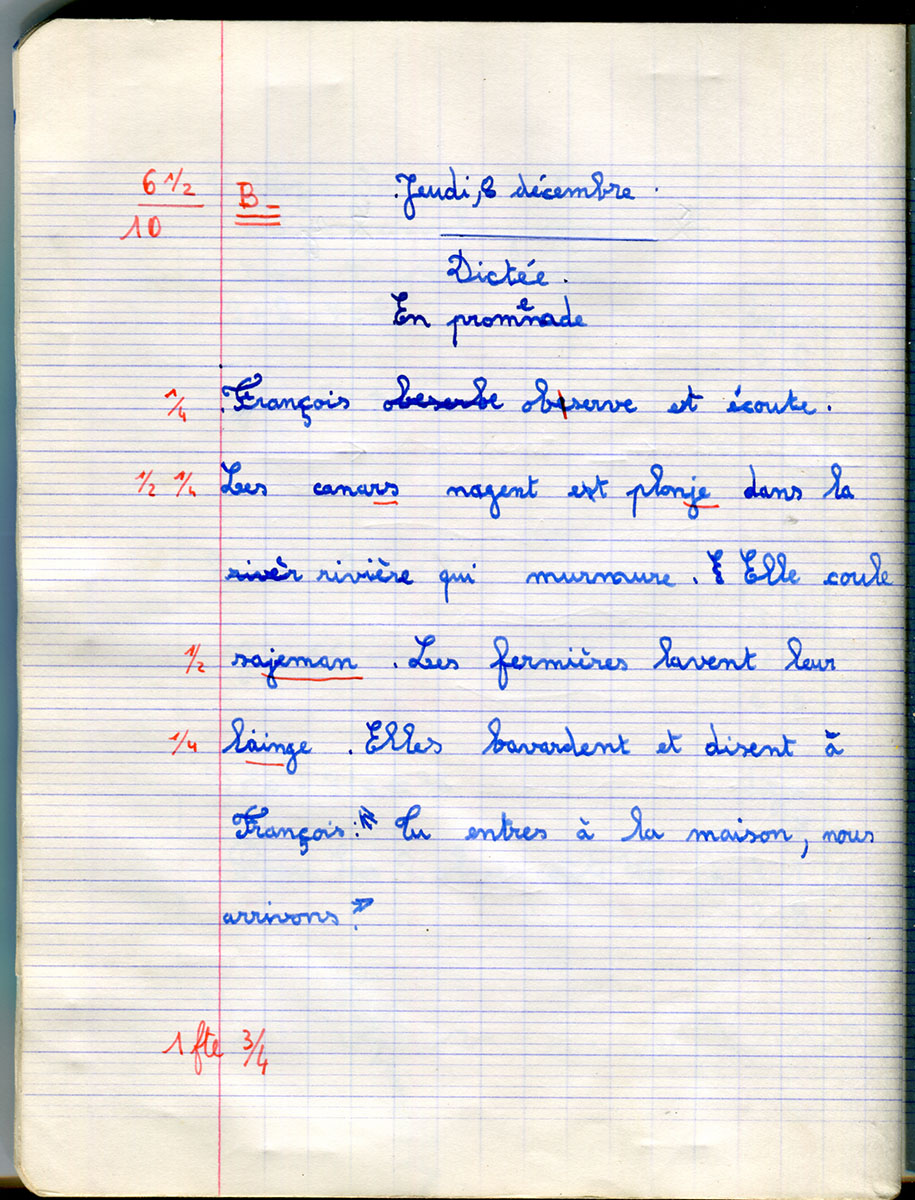 6 1/2
10
B -
Jeudi, 8 décembre
Dictée.
En promenade
1/4 François obeserbe observe et écoute.
1/2 1/4 Les canars nagent et plonje dans la
rivèr rivière qui murmure. E Elle coule
1/2 sajeman. Les fermières lavent leur
1/4 lainge. Elles bavardent et disent à
François : « Tu entres à la maison, nous
arrivons. »
1 fte 3/4